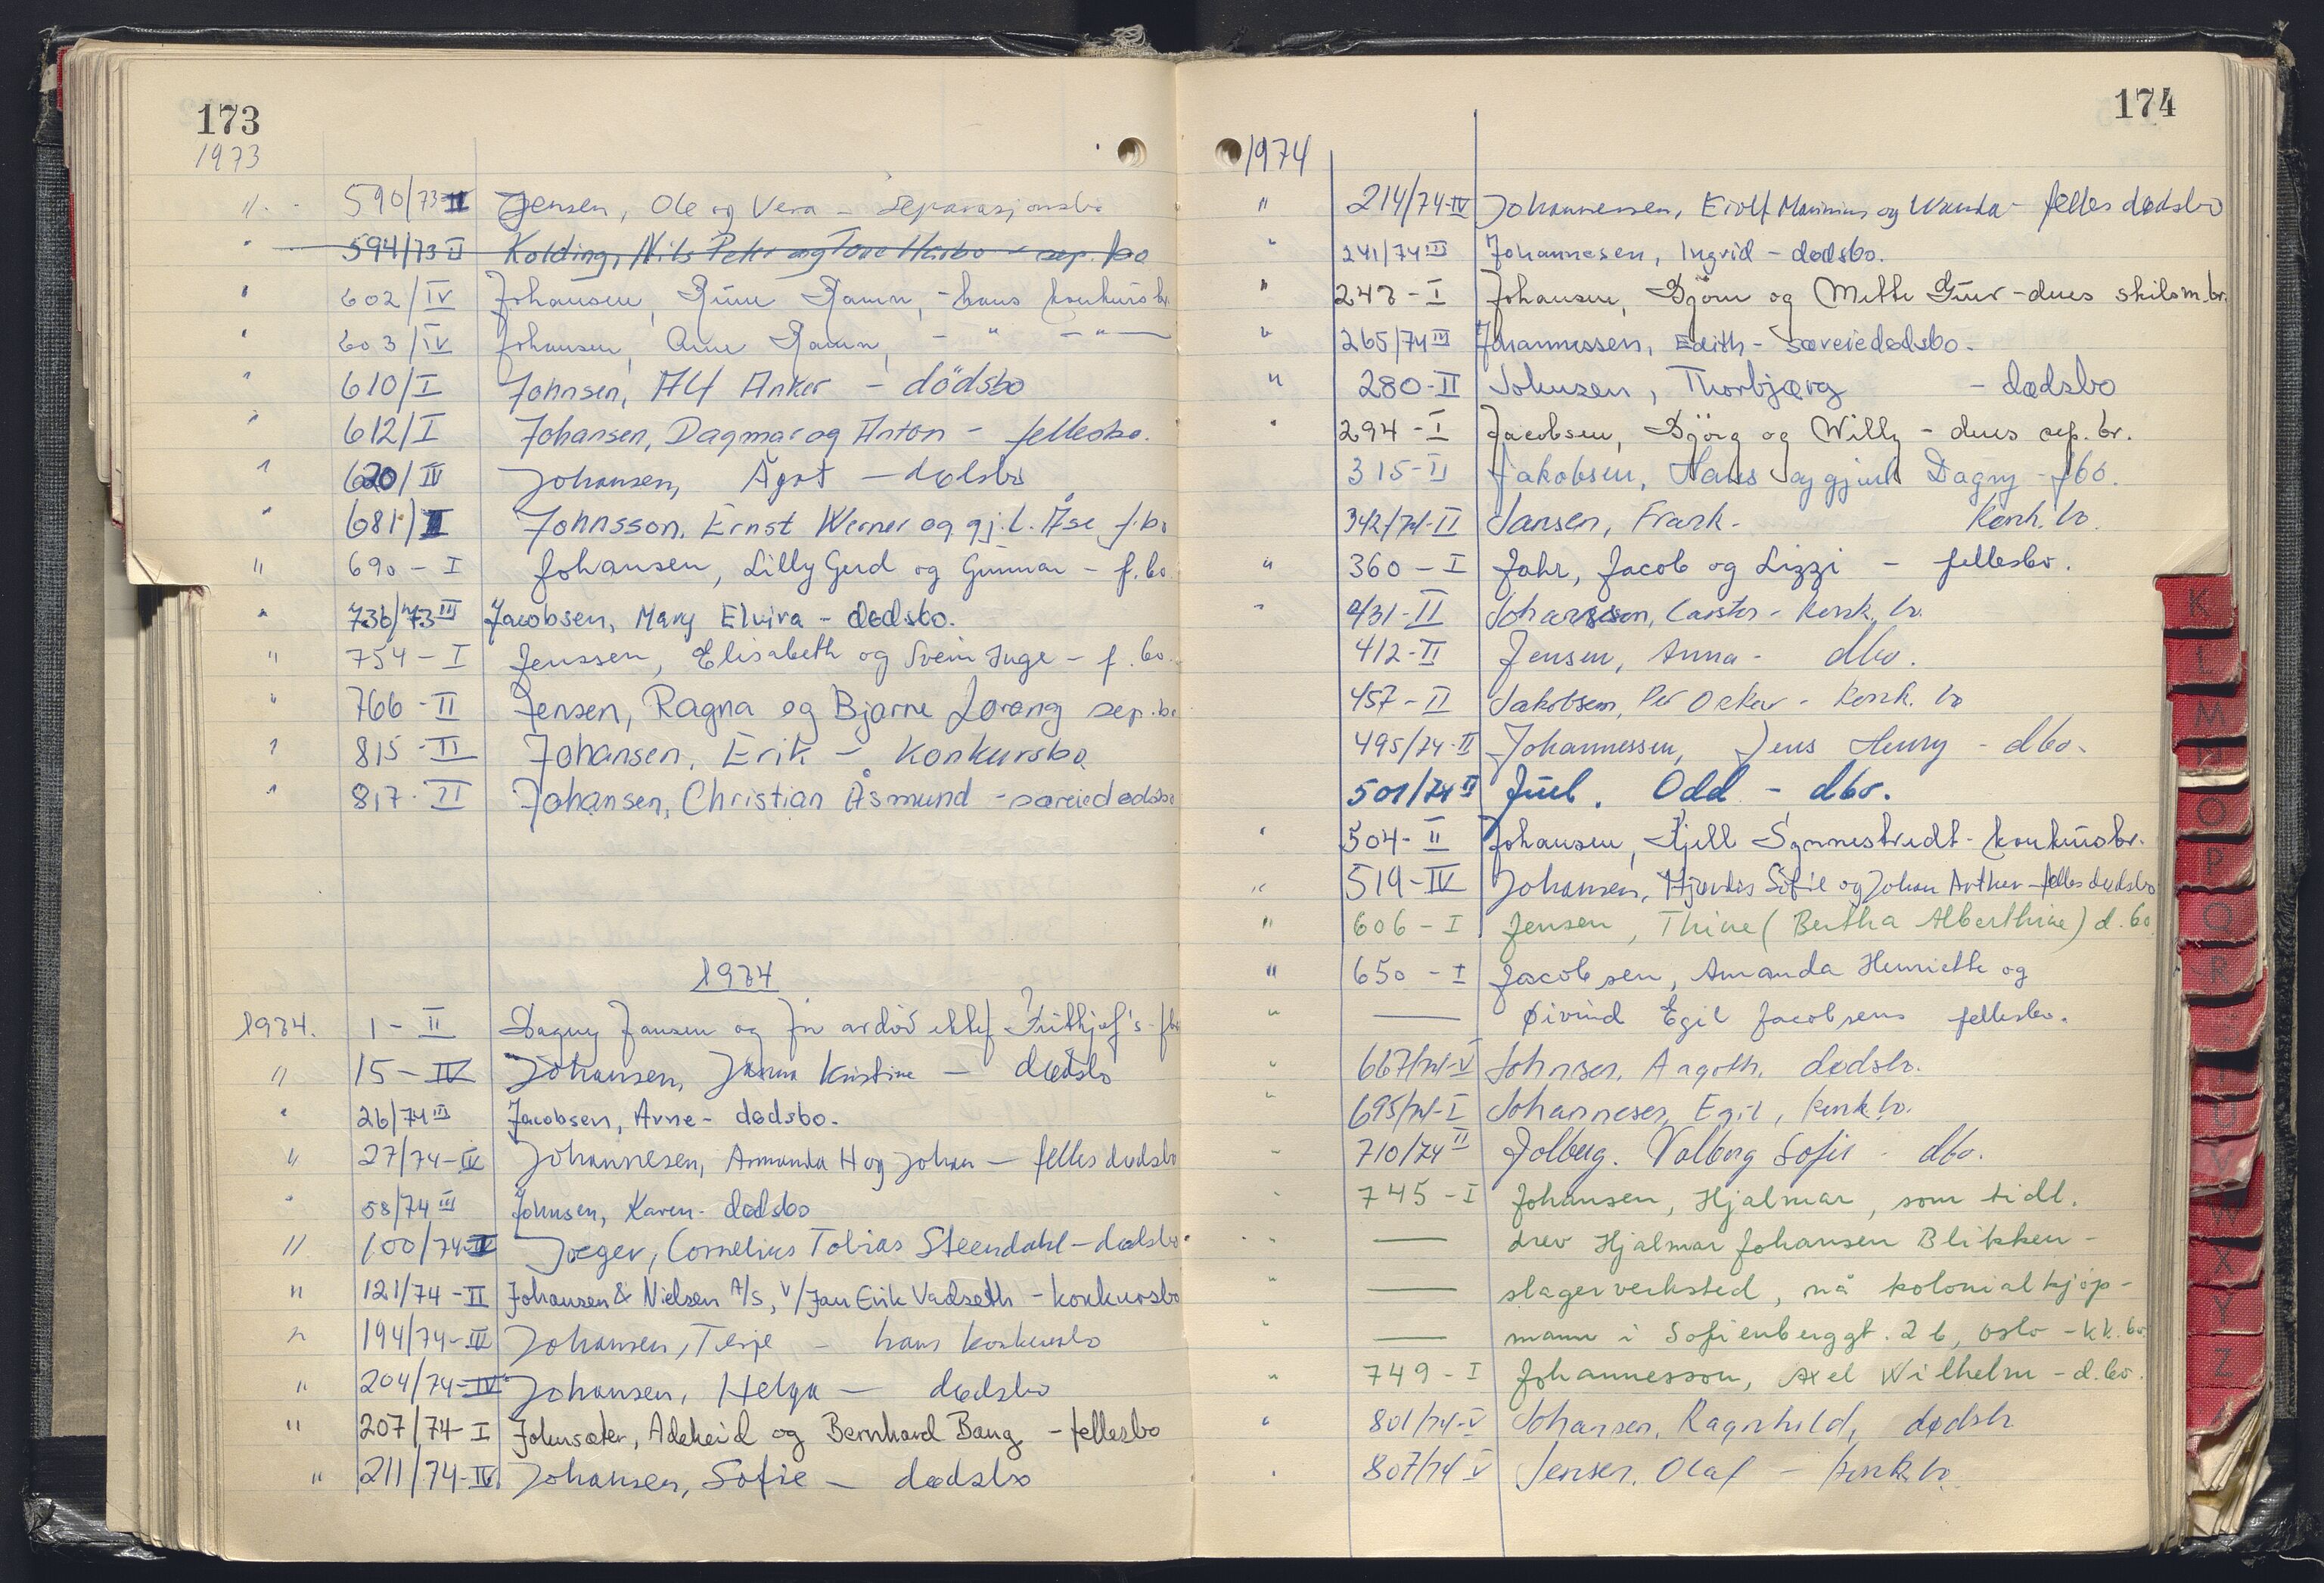 173
1973
" 590/73-II Jensen, Ole og Vera - Separasjonsbo
" 594/73 II Kolding, Nils Peter og Tove - sep. bo
" 602/IV Johansen, Rune Ramn, - hans konkursbo
" 603/IV Johansen, Arne Ramn, - " - " -
" 610/I Johnsen, Alf Anker - dödsbo
" 612/I Johansen, Dagmar og Anton - fellesbo.
" 620/IV Johansen, Ågot - dødsbo
" 681/II Johnsson, Ernst Werner og gj.l. Åse f.bo
" 690 - I Johansen, Lilly Gerd og Gunnar - f.bo
" 736/73 III Jacobsen, Mary Elvira - dødsbo.
" 754 - I Jenssen, Elisabeth og Svein Inge - f.bo.
" 766 - II Jensen, Ragna og Bjarne Lorang sep.bo
" 815 - II Johansen, Erik - Konkursbo
" 817 - II Johansen, Christian Åsmund - særeiedødsbo
1974
1974. 1 - II Dagny Jansen og før avdød ektef. Frithjof's - fbo
" 15 - IV Johansen, Janna Kristine - dødsbo
" 26/74 III Jacobsen, Arne - dødsbo.
" 27/74 - IV Johannesen, Ammanda H og Johan - felles dødsbo
" 58/74 III Johnsen, Karen - dødsbo
" 100/74-IV Jæger, Cornelius Tobias Steendahl - dødsbo
" 121/74 - II Johansen & Nielsen A/S, v/Jan Erik Vadseth - konkursbo
" 194/74 - IV Johansen, Terje - hans konkursbo
" 204/74 - IV Johansen, Helga - dødsbo
" 207/74 - I Johnsæter, Adeheid og Bernhard Bang - fellesbo
" 211/74 - IV Johansen, Sofie - dødsbo
174
1974
" 214/74-IV Johannessen, Eiolf Marinius og Wanda - felles dødsbo
" 241/74 III Johannesen, Ingrid - dødsbo.
" 247 - I Johansen, Björn og Mette - deres skilsm.bo
" 265/74 III Johannessen, Edith - særeiedødsbo.
" 280 - II Johnsen, Thorbjørg - dødsbo
" 294 - I Jacobsen, Björg og Willy - deres sep. bo.
315 - II Jakobsen, Hans og gjenl. Dagny - fbo.
342/74-II Jansen, Frank - konk. bo.
" 360 - I Jahr, Jacob og Lizzi - fellesbo.
" 431 - II Johanssen, Carsten - konk. bo.
412 - II Jensen, Anna - dbo.
457 - II Jakobsen, Per Oskar - konk. bo
495/74-II Johannessen, Jens Henry - dbo.
501/74 II Juel. Odd - dbo.
" 504 - II Johansen, Kjell Synnestvedt - konkursbo.
" 519 - IV Johansen, Hjørdis Sofie og Johan Arthur - felles dødsbo
" 606 - I Jensen, Thine (Bertha Alberthine) d.bo
" 650 - I Jacobsen, Amanda Henriette og
" — Øivind Egil Jacobsens fellesbo.
" 667/74-V Johnsen, Argoth, dødsbo.
" 695/74-I Johannesen, Egil, konk.bo.
" 710/74 II Jolberg. Valborg Sofie - dbo.
" 745 - I Johansen, Hjalmar, som tidl.
" — drev Hjalmar Johansen Blikken-
" — slagerverksted, nå kolonialkjøp-
" — mann i Sofienberggt. 2 b, Oslo - kk.bo.
" 749 - I Johannesson, Axel Wilhelm - d.bo.
" 801/74-V Johansen, Ragnhild, dødsbo
" 807/74 V Jensen, Olaf - konk.bo.
K
L
M
N
O
P
Q
R
T
U
V
W
X
Y
Z